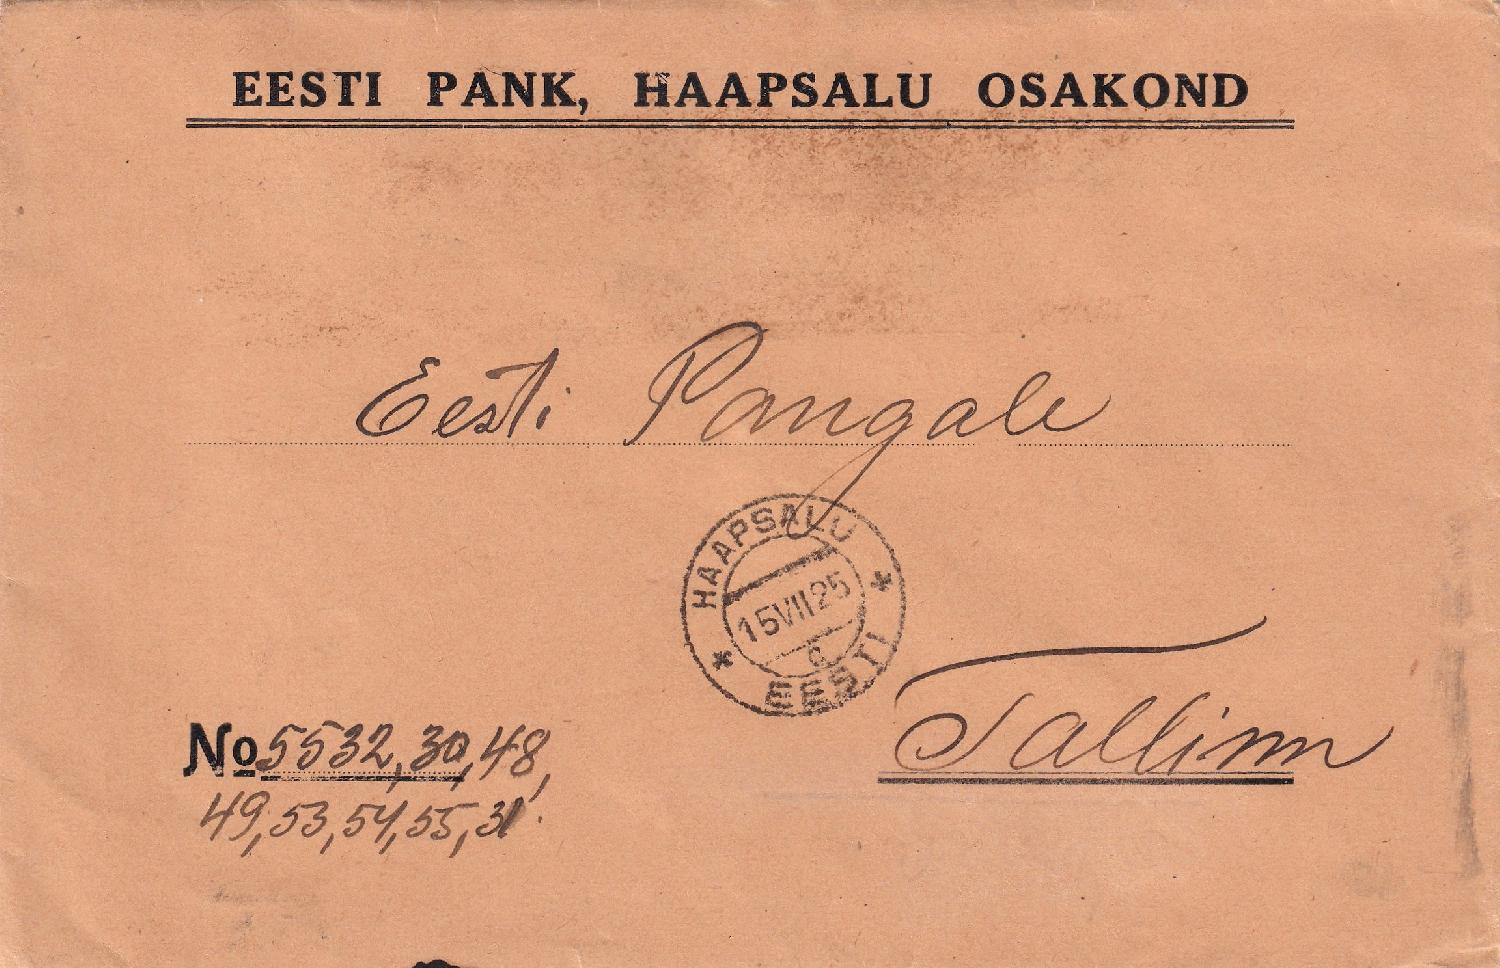 EESTI PANK, HAAPSALU OSAKOND
Eesti Pangale
HAAPSALU
15VII25
c
EESTI
Tallinn
No 5532, 30, 48,
49, 53, 54, 55, 31.